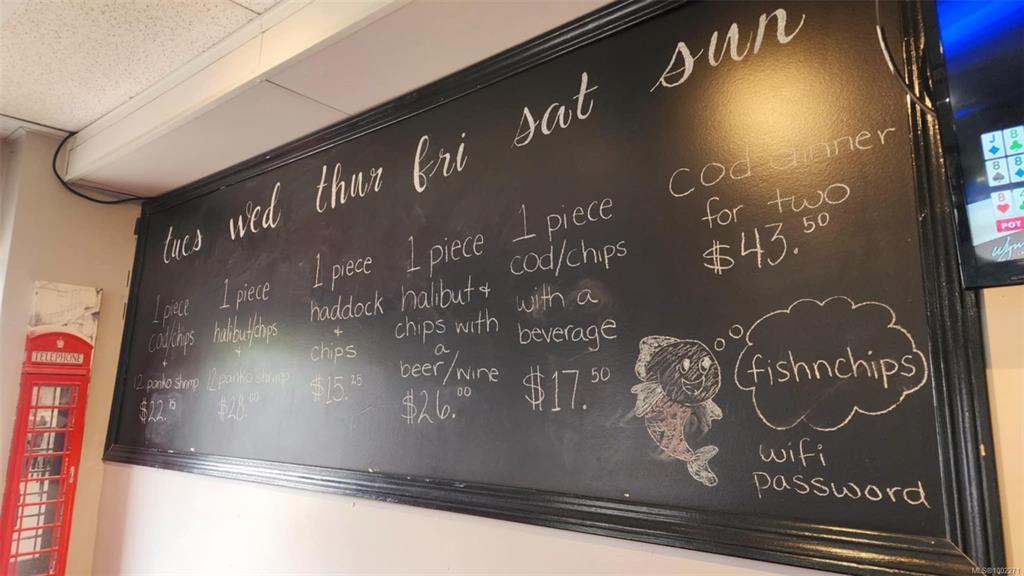 tues
1 piece
cod/chips
+
12 panko shrimp
$22.75
wed
1 piece
halibut/chips
+
12 panko shrimp
$28.00
thur
1 piece
haddock
+
chips
$15.25
fri
1 piece
halibut +
chips with
a
beer/wine
$26.00
sat
1 piece
cod/chips
with a
beverage
$17.50
sun
cod dinner
for two
$43.50
fishnchips
wifi
password
TELEPHONE
J 8
8 8
8
POT
MLS®1002271